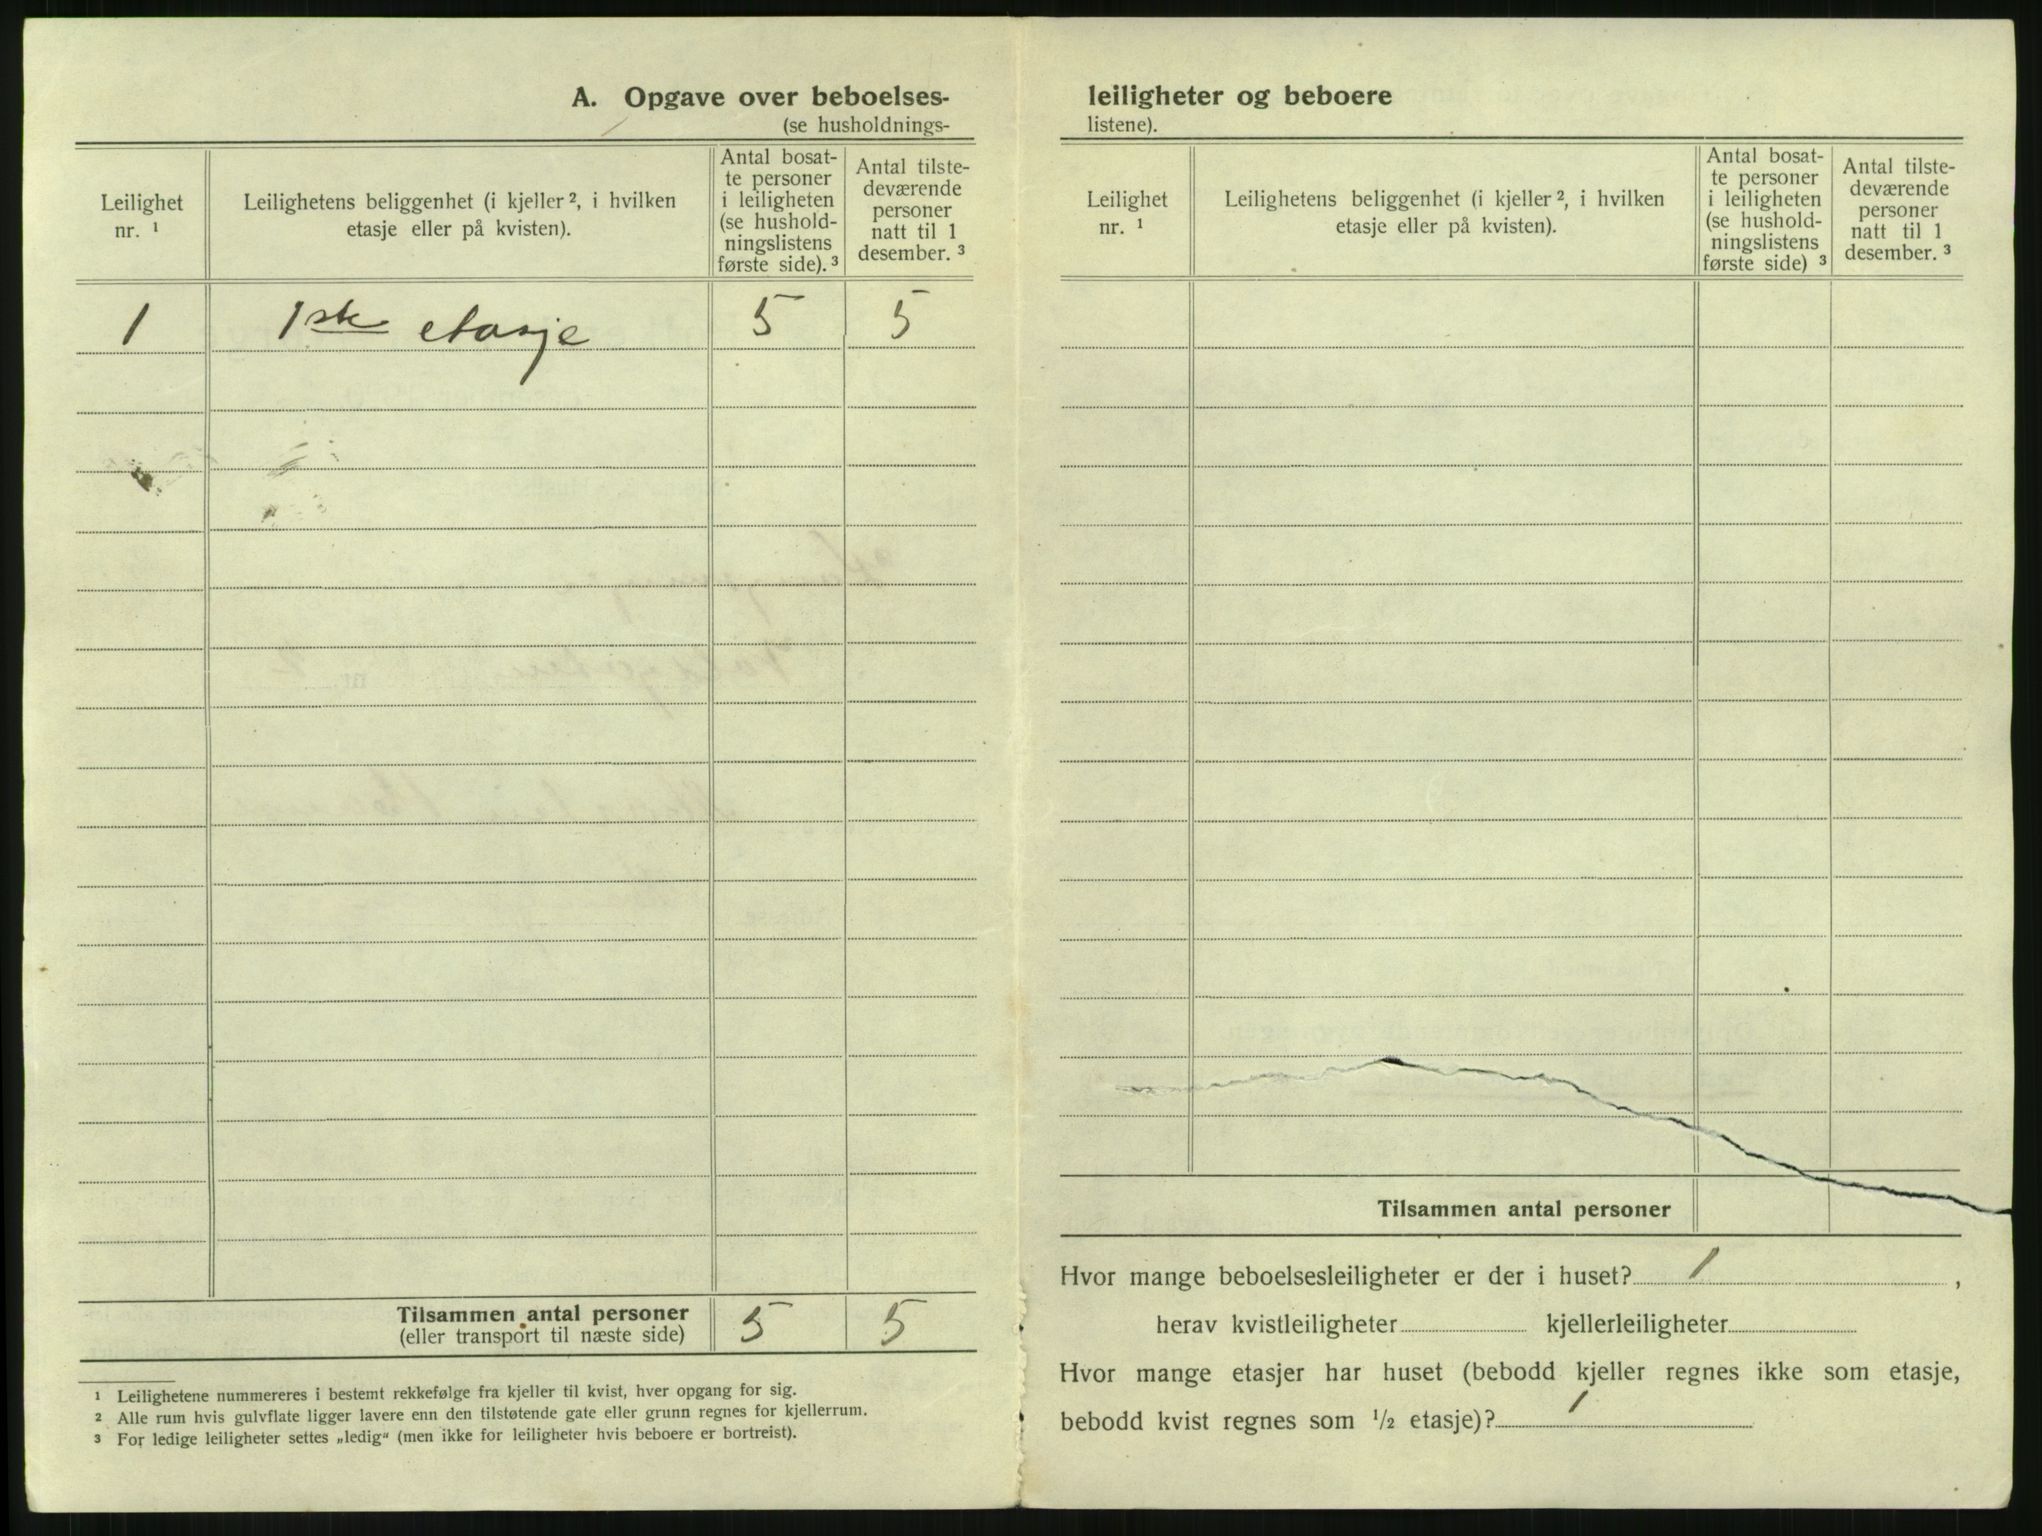 A. Opgave over beboelses-
(se husholdnings-
Leilighet
nr. ¹
Leilighetens beliggenhet (i kjeller ², i hvilken
etasje eller på kvisten).
Antal bosat-
te personer
i leiligheten
(se hushold-
ningslistens
første side). ³
Antal tilste-
deværende
personer
natt til 1
desember. ³
1 1ste etasje 5 5
Tilsammen antal personer 5 5
(eller transport til næste side)
¹ Leilighetene nummereres i bestemt rekkefølge fra kjeller til kvist, hver opgang for sig.
² Alle rum hvis gulvflate ligger lavere enn den tilstøtende gate eller grunn regnes for kjellerrum.
³ For ledige leiligheter settes „ledig“ (men ikke for leiligheter hvis beboere er bortreist).
leiligheter og beboere
listene).
Leilighet
nr. ¹
Leilighetens beliggenhet (i kjeller ², i hvilken
etasje eller på kvisten).
Antal bosat-
te personer
i leiligheten
(se hushold-
ningslistens
første side) ³
Antal tilste-
deværende
personer
natt til 1
desember. ³
Tilsammen antal personer
Hvor mange beboelsesleiligheter er der i huset? 1 ,
herav kvistleiligheter kjellerleiligheter
Hvor mange etasjer har huset (bebodd kjeller regnes ikke som etasje,
bebodd kvist regnes som ½ etasje)? 1